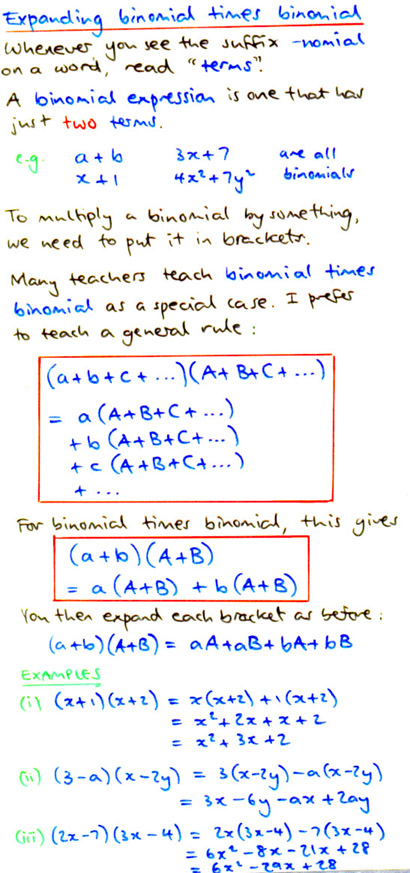 Expanding binomial times binomial
Whenever you see the suffix -nomial
on a word, read "terms".
A binomial expression is one that has
just two terms.
e.g. a+b 3x+7 are all
x+1 4x²+7y² binomials
To multiply a binomial by something,
we need to put it in brackets.
Many teachers teach binomial times
binomial as a special case. I prefer
to teach a general rule:
(a+b+c+...)(A+B+C+...)
= a(A+B+C+...)
+b(A+B+C+...)
+c(A+B+C+...)
+...
For binomial times binomial, this gives
(a+b)(A+B)
= a(A+B) + b(A+B)
You then expand each bracket as before:
(a+b)(A+B) = aA+aB+bA+bB
EXAMPLES
(i) (x+1)(x+2) = x(x+2)+1(x+2)
= x²+2x+x+2
= x²+3x+2
(ii) (3-a)(x-2y) = 3(x-2y)-a(x-2y)
= 3x-6y-ax+2ay
(iii) (2x-7)(3x-4) = 2x(3x-4)-7(3x-4)
= 6x²-8x-21x+28
= 6x²-29x+28